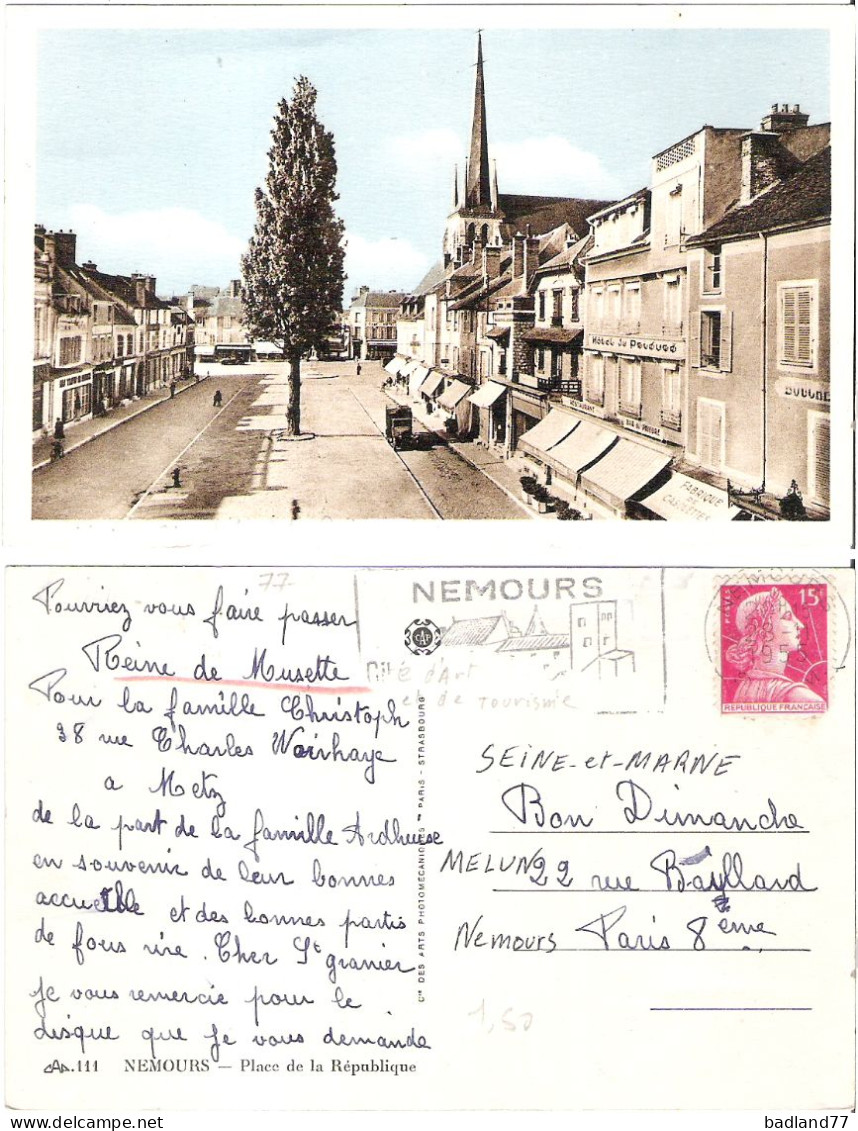 Hôtel du Pouduno
RESTAURANT
BOUCHE
FABRIQUE
DE
CASQUETTES
77
Pourriez vous faire passer
Reine de Musette
Pour la famille Christoph
38 rue Charles Woirhaye
a Metz
de la part de la famille Ardheuse
en souvenir de leur bonnes
accueille et des bonnes partis
de fous rire. Cher St granier
je vous remercie pour le
disque que je vous demande
CAP.111 NEMOURS — Place de la République
Cie DES ARTS PHOTOMÉCANIQUES PARIS - STRASBOURG
NEMOURS
CAP
Cité d'Art
et de Tourisme
15F
POSTES
REPUBLIQUE FRANÇAISE
SEINE-et-MARNE
Bon Dimanche
MELUN 22 rue Bayllard
Nemours Paris 8ème
1,50
badland77